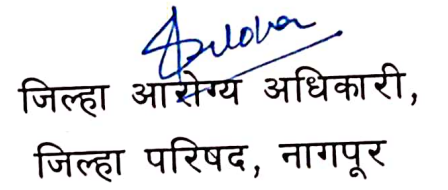 जिल्हा आरोग्य अधिकारी,
जिल्हा परिषद, नागपूर